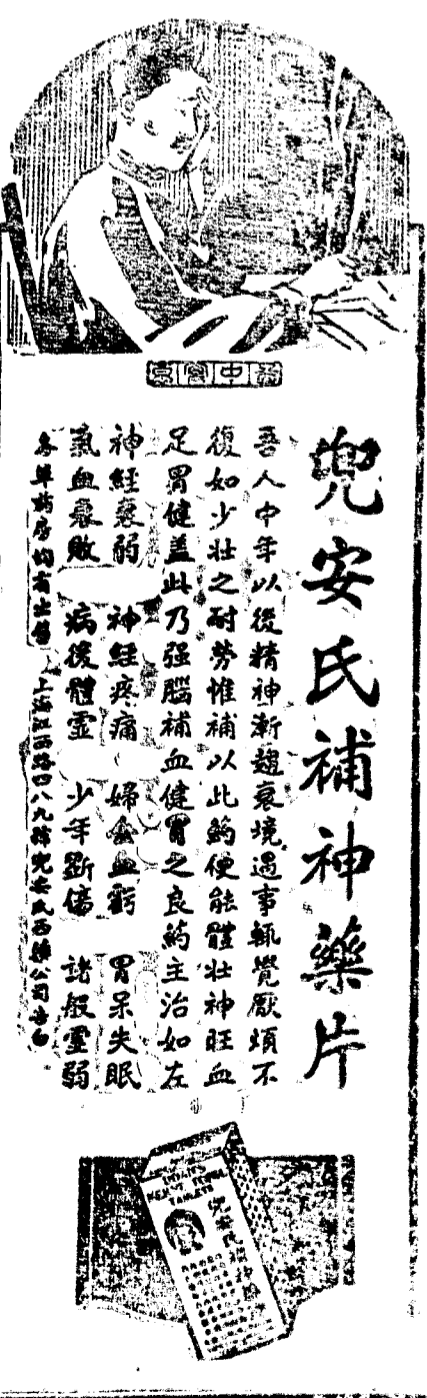 兜安氏補神藥片
吾人中年以後精神漸趨衰境遇事輒覺厭煩不
復如少壯之耐勞惟補以此药便能體壯神旺血
足胃健蓋此乃强腦補血健胃之良药主治如左
神經衰弱 神經疼痛 婦人血虧 胃呆失眠
氣血衰敗 病後體虛 少年斲傷 諸般虛弱
各埠药房均有出售 上海江西路四八九號兜安氏西藥公司告白
DOAN'S
TABLETS